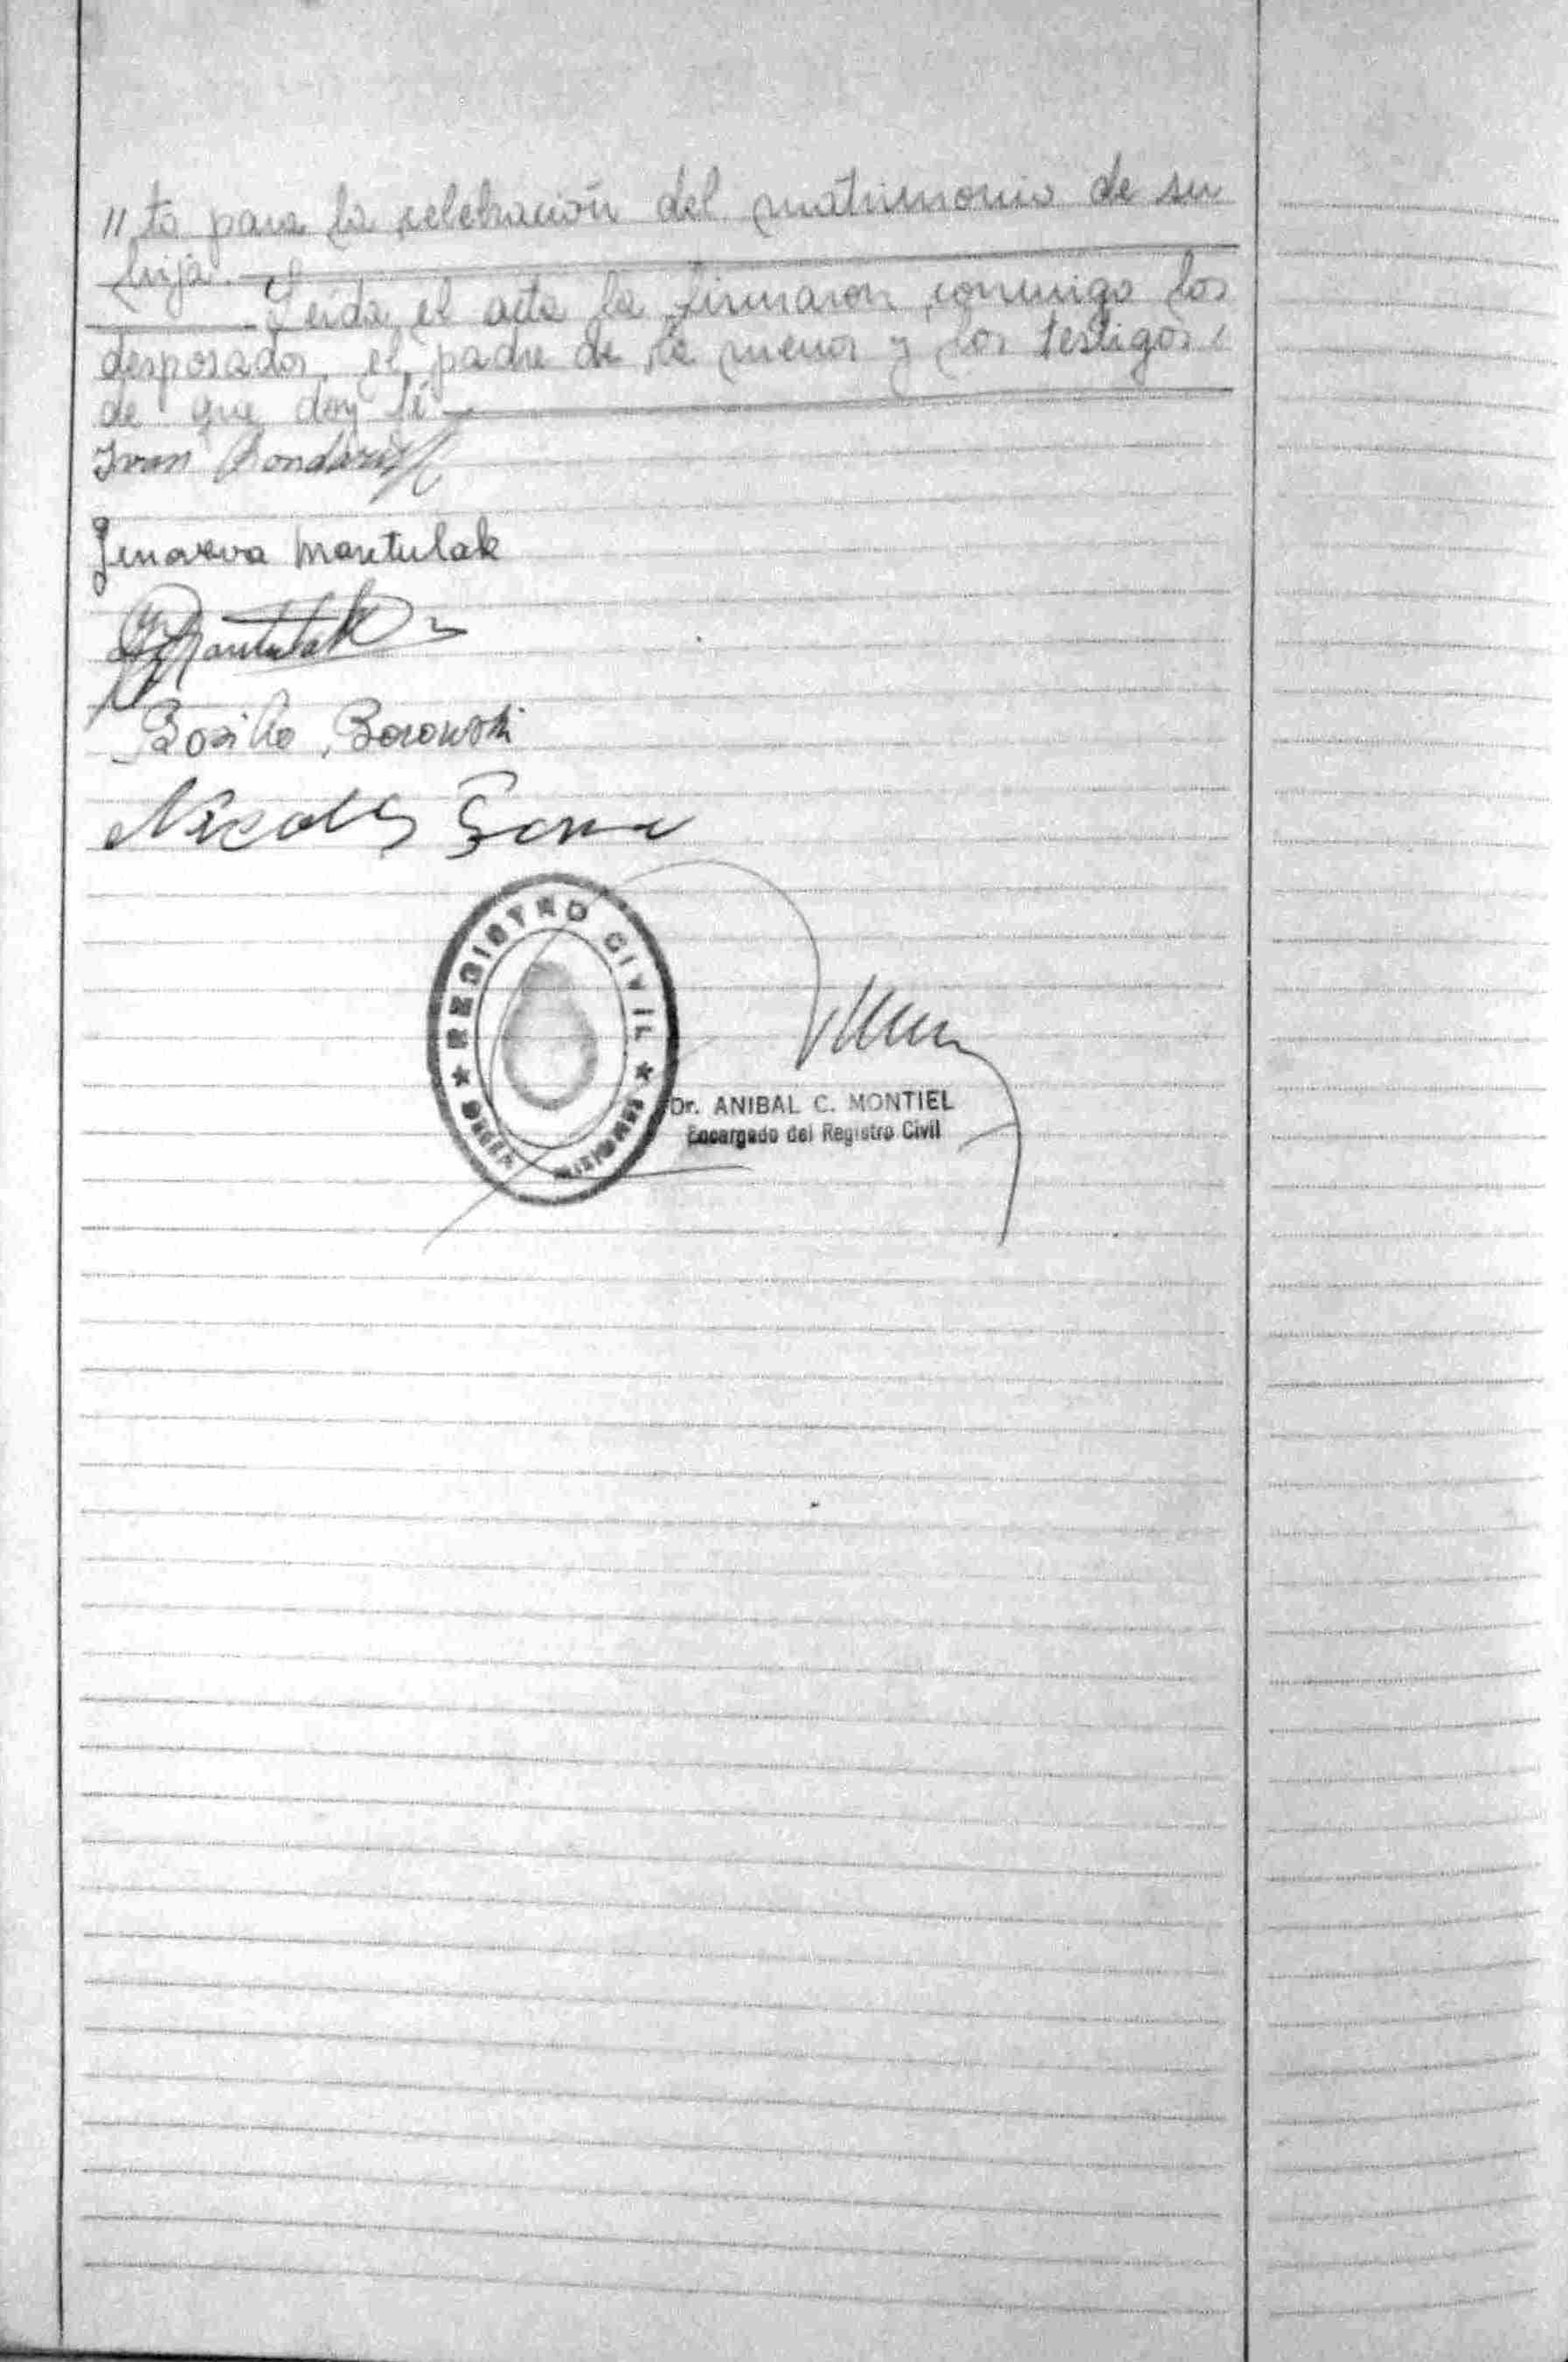 "to para la celebración del matrimonio de su
hija.
Leída el acta la firmaron conmigo los
desposados, el padre de la menor y los testigos
de que doy fé
Ivan
Genoveva Mantulak
Mantulak
Basilio Borowski
Nicolas
REGISTRO CIVIL
MISIONES
Dr. ANIBAL C. MONTIEL
Encargado del Registro Civil